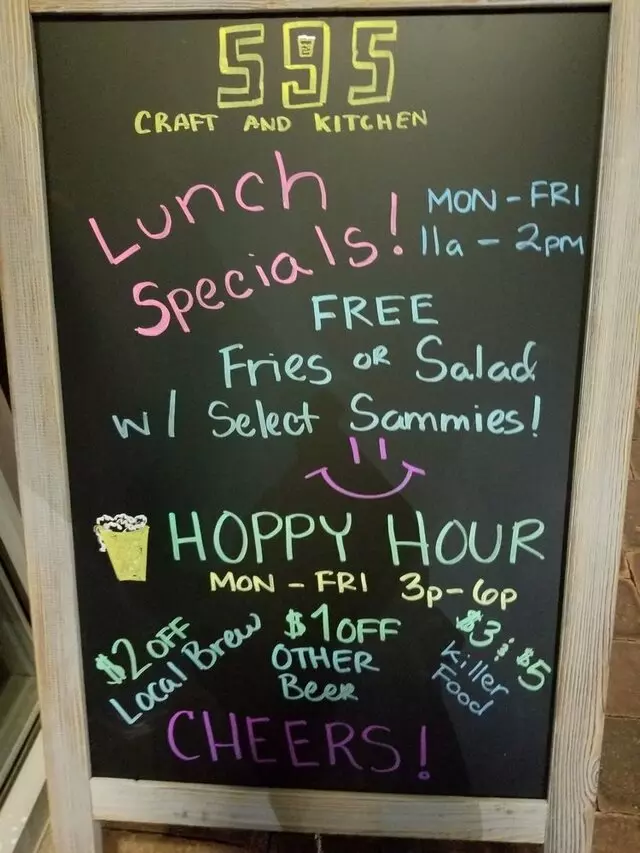 595
CRAFT AND KITCHEN
Lunch
Specials!
MON - FRI
11a - 2pm
FREE
Fries OR Salad
w/ Select Sammies!
HOPPY HOUR
MON - FRI 3p-6p
$2 OFF
Local Brew
$1 OFF
OTHER
Beer
$3 & $5
Killer
Food
CHEERS!